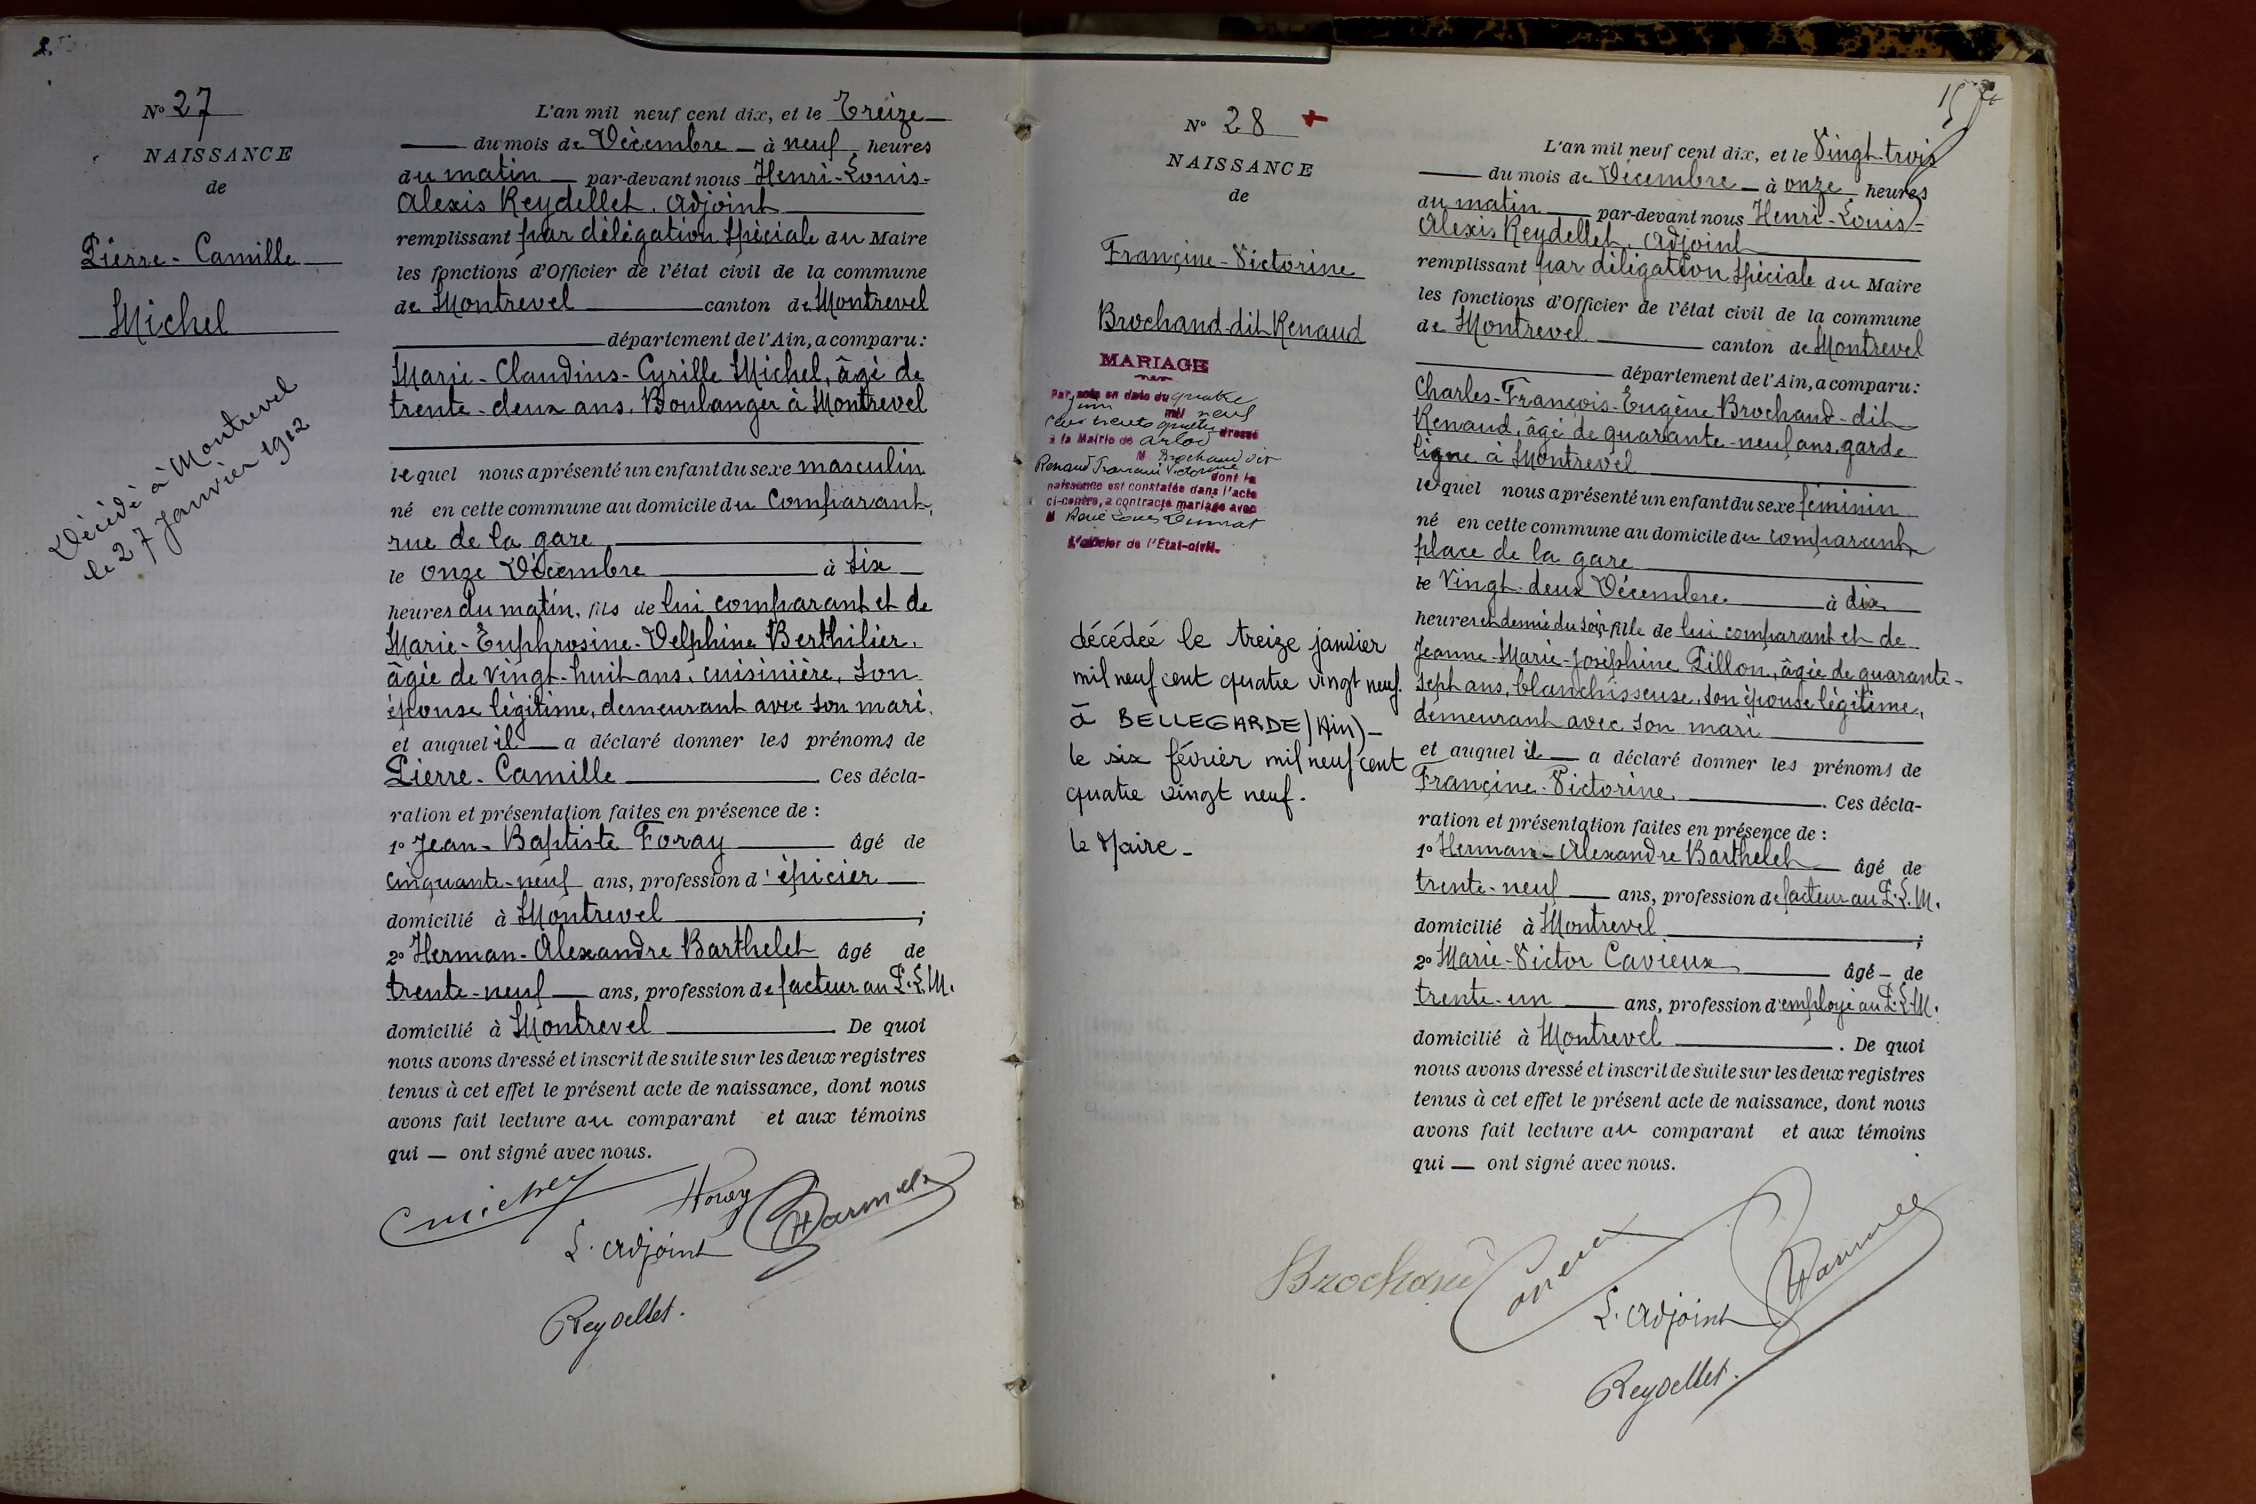 N° 27
NAISSANCE
de
Pierre-Camille
Michel
Décédé à Montrevel
le 27 Janvier 1912
L'an mil neuf cent dix, et le Treize
du mois de Décembre à neuf heures
du matin par-devant nous Henri-Louis-
Alexis Reydellet, Adjoint
remplissant par délégation spéciale du Maire
les fonctions d'Officier de l'état civil de la commune
de Montrevel canton de Montrevel
département de l'Ain, a comparu :
Marie-Claudius-Cyrille Michel, âgé de
trente-deux ans, Boulanger à Montrevel
lequel nous a présenté un enfant du sexe masculin
né en cette commune au domicile du comparant,
rue de la gare
le onze Décembre à six
heures du matin, fils de lui comparant et de
Marie-Euphrosine-Delphine Berthilier,
âgée de vingt-huit ans, cuisinière, son
épouse légitime, demeurant avec son mari,
et auquel il a déclaré donner les prénoms de
Pierre-Camille Ces décla-
ration et présentation faites en présence de :
1° Jean-Baptiste Foray âgé de
cinquante-neuf ans, profession d'épicier
domicilié à Montrevel ;
2° Herman-Alexandre Barthelet âgé de
trente-neuf ans, profession de facteur au P.L.M.
domicilié à Montrevel . De quoi
nous avons dressé et inscrit de suite sur les deux registres
tenus à cet effet le présent acte de naissance, dont nous
avons fait lecture au comparant et aux témoins
qui — ont signé avec nous.
Michel
Foray
L'Adjoint
Reydellet.
15
N° 28 +
NAISSANCE
de
Françine-Victorine
Brochand-dit Renaud
MARIAGE
Par acte en date du quatre
juin mil neuf
cent trente quatre dressé
à la Mairie de Arlod
M Brochand dit
Renaud Francine Victorine
dont la
naissance est constatée dans l'acte
ci-contre, a contracté mariage avec
M René Louis
L'officier de l'État-civil.
décédée le treize janvier
mil neuf cent quatre vingt neuf.
à BELLEGARDE (Ain) -
le six février mil neuf cent
quatre vingt neuf.
le Maire -
L'an mil neuf cent dix, et le Vingt-trois
du mois de Décembre à onze heures
du matin par-devant nous Henri-Louis-
Alexis Reydellet, Adjoint
remplissant par délégation spéciale du Maire
les fonctions d'Officier de l'état civil de la commune
de Montrevel canton de Montrevel
département de l'Ain, a comparu :
Charles-François-Eugène Brochand-dit
Renaud, âgé de quarante-neuf ans, garde
ligne à Montrevel
lequel nous a présenté un enfant du sexe féminin
né en cette commune au domicile du comparant,
place de la gare
le Vingt-deux Décembre à dix
heures et demie du soir, fille de lui comparant et de
Jeanne-Marie-Joséphine Pillon, âgée de quarante-
sept ans, blanchisseuse, son épouse légitime,
demeurant avec son mari
et auquel il a déclaré donner les prénoms de
Françine-Victorine. . Ces décla-
ration et présentation faites en présence de :
1° Herman-Alexandre Barthelet âgé de
trente-neuf ans, profession de facteur au P.L.M.
domicilié à Montrevel ;
2° Marie-Victor Cavieux âgé de
trente-un ans, profession d'employé au P.L.M.
domicilié à Montrevel . De quoi
nous avons dressé et inscrit de suite sur les deux registres
tenus à cet effet le présent acte de naissance, dont nous
avons fait lecture au comparant et aux témoins
qui — ont signé avec nous.
Brochand
Cavieux
L'Adjoint
Reydellet.